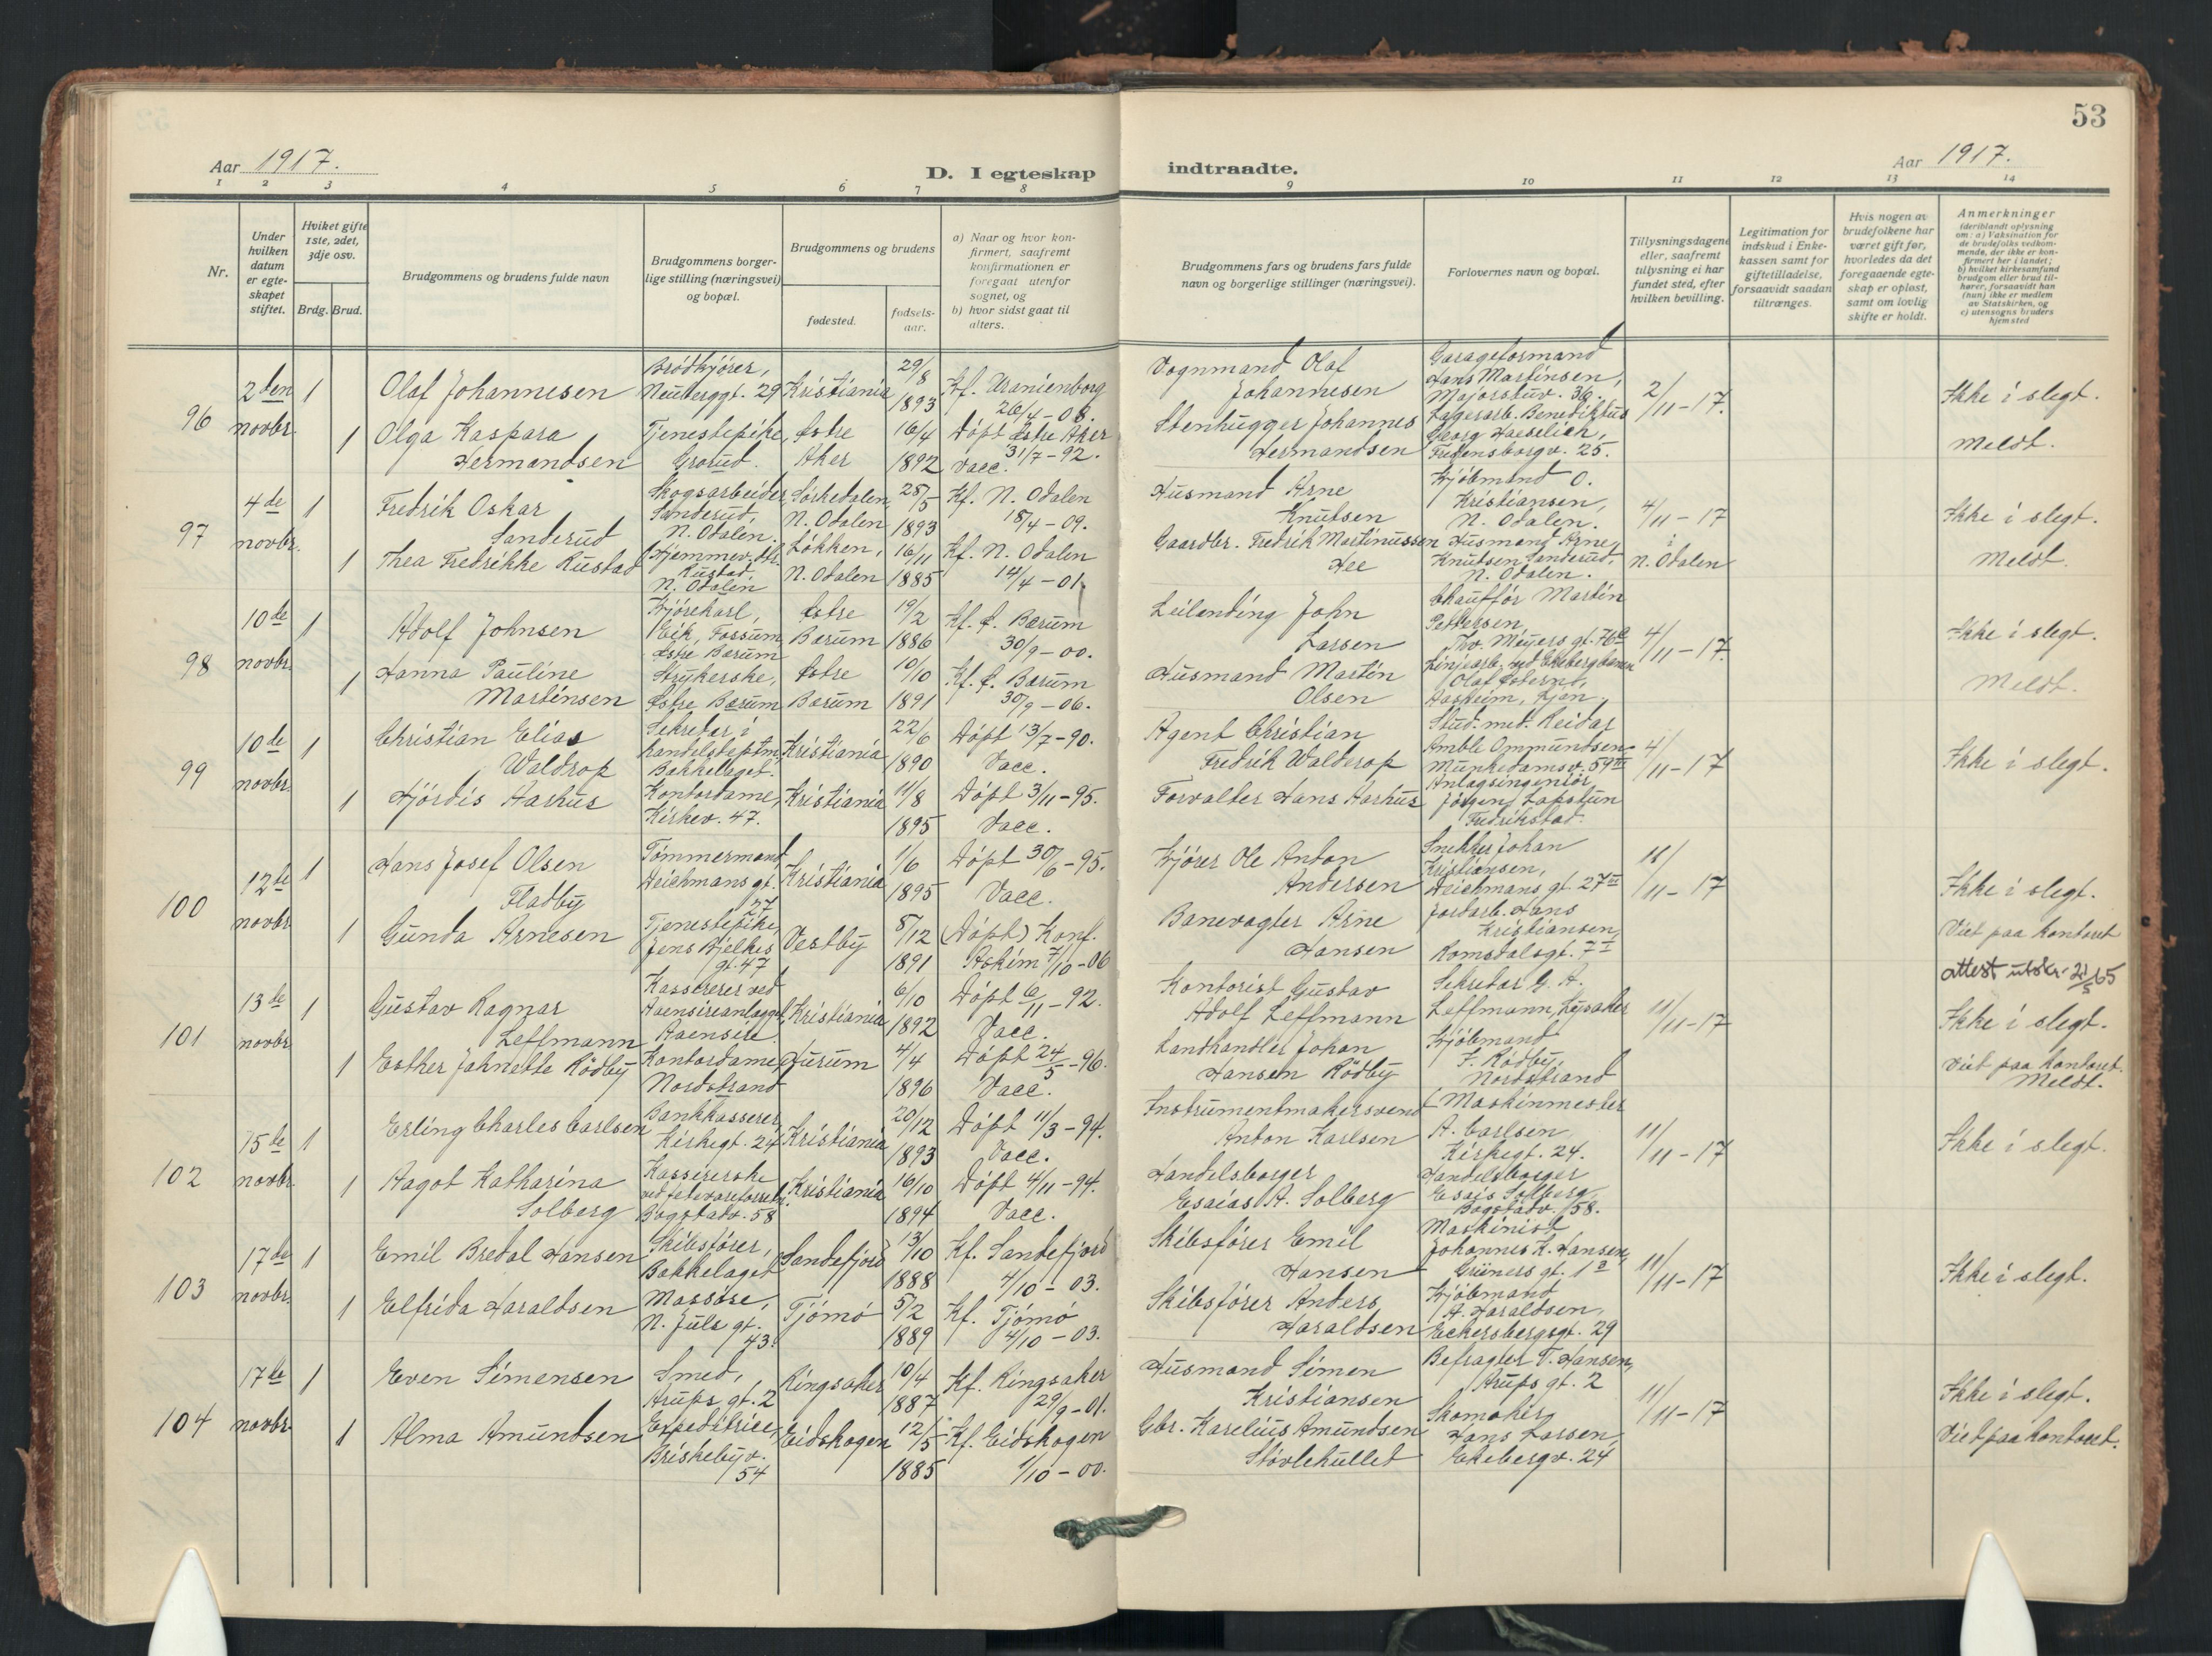 53
Aar 1917.
D. I egteskap indtraadte.
Aar 1917.
1 2 3 4 5 6 7 8 9 10 11 12 13 14
Nr.
Under hvilken datum er egte-skapet stiftet.
Hviket gifte 1ste, 2det, 3dje osv.
Brdg. Brud.
Brudgommens og brudens fulde navn
Brudgommens borger-lige stilling (næringsvei) og bopæl.
Brudgommens og brudens
fødested.
fødsels-aar.
a) Naar og hvor kon-firmert, saafremt konfirmationen er foregaat utenfor sognet, og
b) hvor sidst gaat til alters.
Brudgommens fars og brudens fars fulde navn og borgerlige stillinger (næringsvei).
Forlovernes navn og bopæl.
Tillysningsdagene eller, saafremt tillysning ei har fundet sted, efter hvilken bevilling.
Legitimation for indskud i Enke-kassen samt for giftetilladelse, forsaavidt saadan tiltrænges.
Hvis nogen av brudefolkene har været gift før, hvorledes da det foregaaende egte-skap er opløst, samt om lovlig skifte er holdt.
Anmerkninger (deriblandt oplysning om: a) Vaksination for de brudefolks vedkom-mende, der ikke er kon-firmert her i landet; b) hvilket kirkesamfund brudgom eller brud til-hører, forsaavidt han (hun) ikke er medlem av Statskirken, og c) utensogns bruders hjemsted
96
2den novbr.
1
Olaf Johannesen
Brødkjører, Neuberggt. 29
Kristiania
29/8 1893
Kf. Uranienborg 26/4-08.
Vognmand Olaf Johannesen
Garageformand Hans Martinsen, Majorstuv. 36.
2/11-17.
Ikke i slegt.
1
Olga Kaspara Hermandsen
Tjenestepike, Grorud.
Østre Aker
16/4 1892
Døpt Østre Aker 31/7-92. Vacc.
Stenhugger Johannes Hermandsen
Lagerarb. Benediktus Georg Haeselich, Fredensborgv. 25.
Meldt.
97
4de novbr.
1
Fredrik Oskar Sanderud
Skogsarbeider, Sanderud, N. Odalen.
Sørkedalen, N. Odalen
28/5 1893
Kf. N. Odalen 18/4-09.
Husmand Arne Knutsen
Kjøbmand O. Kristiansen, N. Odalen.
4/11-17 i N. Odalen
Ikke i slegt.
1
Thea Fredrikke Rustad
Hjemmev. dtr. Rustad, N. Odalen
Løkken, N. Odalen
16/11 1885
Kf. N. Odalen 14/4-01
Gaardbr. Fredrik Martinussen Hee
Husmand Arne Knutsen, Sanderud, N. Odalen.
Meldt.
98
10de novbr.
1
Adolf Johnsen
Kjørekarl, Eik, Fossum Østre Bærum
Østre Bærum
19/2 1886
Kf. Ø. Bærum 30/9-00.
Leilending John Larsen
Chauffør Martin Pettersen, Thv. Meyers gt. 76
4/11-17.
Ikke i slegt.
1
Hanna Pauline Martinsen
Strykerske, Østre Bærum
Østre Bærum
10/10 1891
Kf. Ø. Bærum 30/9-06.
Husmand Martin Olsen
Linjearb. ved Ekebergbanen Olaf Østernd, Aasheim, Ljan.
Meldt.
99
10de novbr.
1
Christian Elias Waldrop
Sekretær i handelsdeptm. Bækkelaget.
Kristiania
22/6 1890
Døpt 13/7-90. Vacc.
Agent Christian Fredrik Walderop
Stud. med. Reidar Amble Ommundsen Munkedamsv. 59 III
4/11-17
Ikke i slegt.
1
Hjørdis Aarhus
Kontordame, Kirkev. 47.
Kristiania
11/8 1895
Døpt 3/11-95. Vacc.
Forvalter Hans Aarhus
Anlægsingeniør Jørgen Løpstun Fredrikstad.
100
12te novbr.
1
Hans Josef Olsen Fladby
Tømmermand Deichmans gt. 27
Kristiania
1/6 1895
Døpt 30/6-95. Vacc.
Kjører Ole Anton Andersen
Snekker Johan Kristiansen, Deichmans gt. 27 II
11/11-17
Ikke i slegt.
1
Gunda Arnesen
Tjenestepike Jens Bjelkes gt. 47
Vestby
8/12 1891
(Døpt) Konf. Askim 7/10-06
Banevogter Arne Hansen
Jordarb. Hans Kristiansen, Romsdalsgt. 7 I
Viet paa kontoret
attest utskr. 21/5 65
101
13de novbr.
1
Gustav Ragnar Leffmann
Kasserer ved Aaensireanlægget, Aaensire.
Kristiania
6/10 1892
Døpt 6/11-92. Vacc.
Kontorist Gustav Adolf Leffmann
Sekretær G. A. Leffmann, Lysaker
11/11-17
Ikke i slegt.
1
Esther Jahnette Rødby
Kontordame, Nordstrand
Hurum
4/4 1896
Døpt 24/5-96. Vacc.
Landhandler Johan Hansen Rødby
Kjøbmand J. Rødby, Nordstrand
Viet paa kontoret. Meldt.
102
15de novbr.
1
Erling Charles Carlsen
Bankkasserer, Kirkegt. 24
Kristiania
20/12 1893
Døpt 11/3-94. Vacc.
Instrumentmakersvend Anton Karlsen
Maskinmester A. Carlsen, Kirkegt. 24.
11/11-17
Ikke i slegt.
1
Aagot Katharina Solberg
Kassererske ved fetevareforretn. Bogstadv. 58
Kristiania
16/10 1894
Døpt 4/11-94. Vacc.
Handelsborger Esaias A. Solberg
Handelsborger Esais Solberg, Bogstadv. 58.
103
17de novbr.
1
Emil Bredal Hansen
Skibsfører, Bækkelaget
Sandefjord
13/10 1888
Kf. Sandefjord 4/10-03.
Skibsfører Emil Hansen
Maskinist Johannes K. Hansen, Grüners gt. 1 a
11/11-17
Ikke i slegt.
1
Elfrida Haraldsen
Massøse, N. Juels gt. 43.
Tjømø
5/2 1889
Kf. Tjømø 4/10-03.
Skibsfører Anders Haraldsen
Kjøbmand A. Haraldsen, Eckersbergsgt. 29
104
17de novbr.
1
Even Simensen
Smed, Arups gt. 2
Ringsaker
10/4 1887
Kf. Ringsaker 29/9-01.
Husmand Simen Kristiansen
Befragter T. Hansen, Arups gt. 2
11/11-17
Ikke i slegt.
1
Alma Amundsen
Expeditrice, Briskebyv. 54
Eidskogen
12/5 1885
Kf. Eidskogen 1/10-00.
Gbr. Karelius Amundsen Støvlehullet
Skomaker Hans Larsen, Ekebergv. 24
Viet paa kontoret.